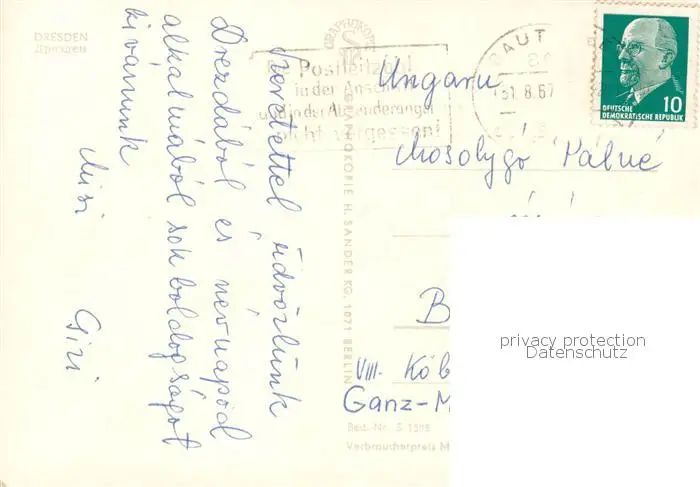 DRESDEN
Zwinger
Szeretettel üdvözlünk
Drezdából és nevnapod
alkalmából sok boldogságot
kivánunk
Misi
Gizi
GRAPHOKOPIE H. SANDER KG, 1071 BERLIN
Postleitzahl
in der Anschrift
und in der Absenderangabe
nicht vergessen!
BAUT
31.8.67
10
DEUTSCHE
DEMOKRATISCHE REPUBLIK
Ungarn
Mosolygó Pálné
B
VIII. Kőb
Ganz-M
Best.-Nr. S 1508
Verbraucherpreis M
privacy protection
Datenschutz